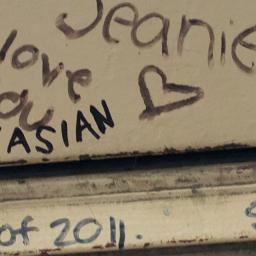 Jeanie
love
ASIAN
of 2011.